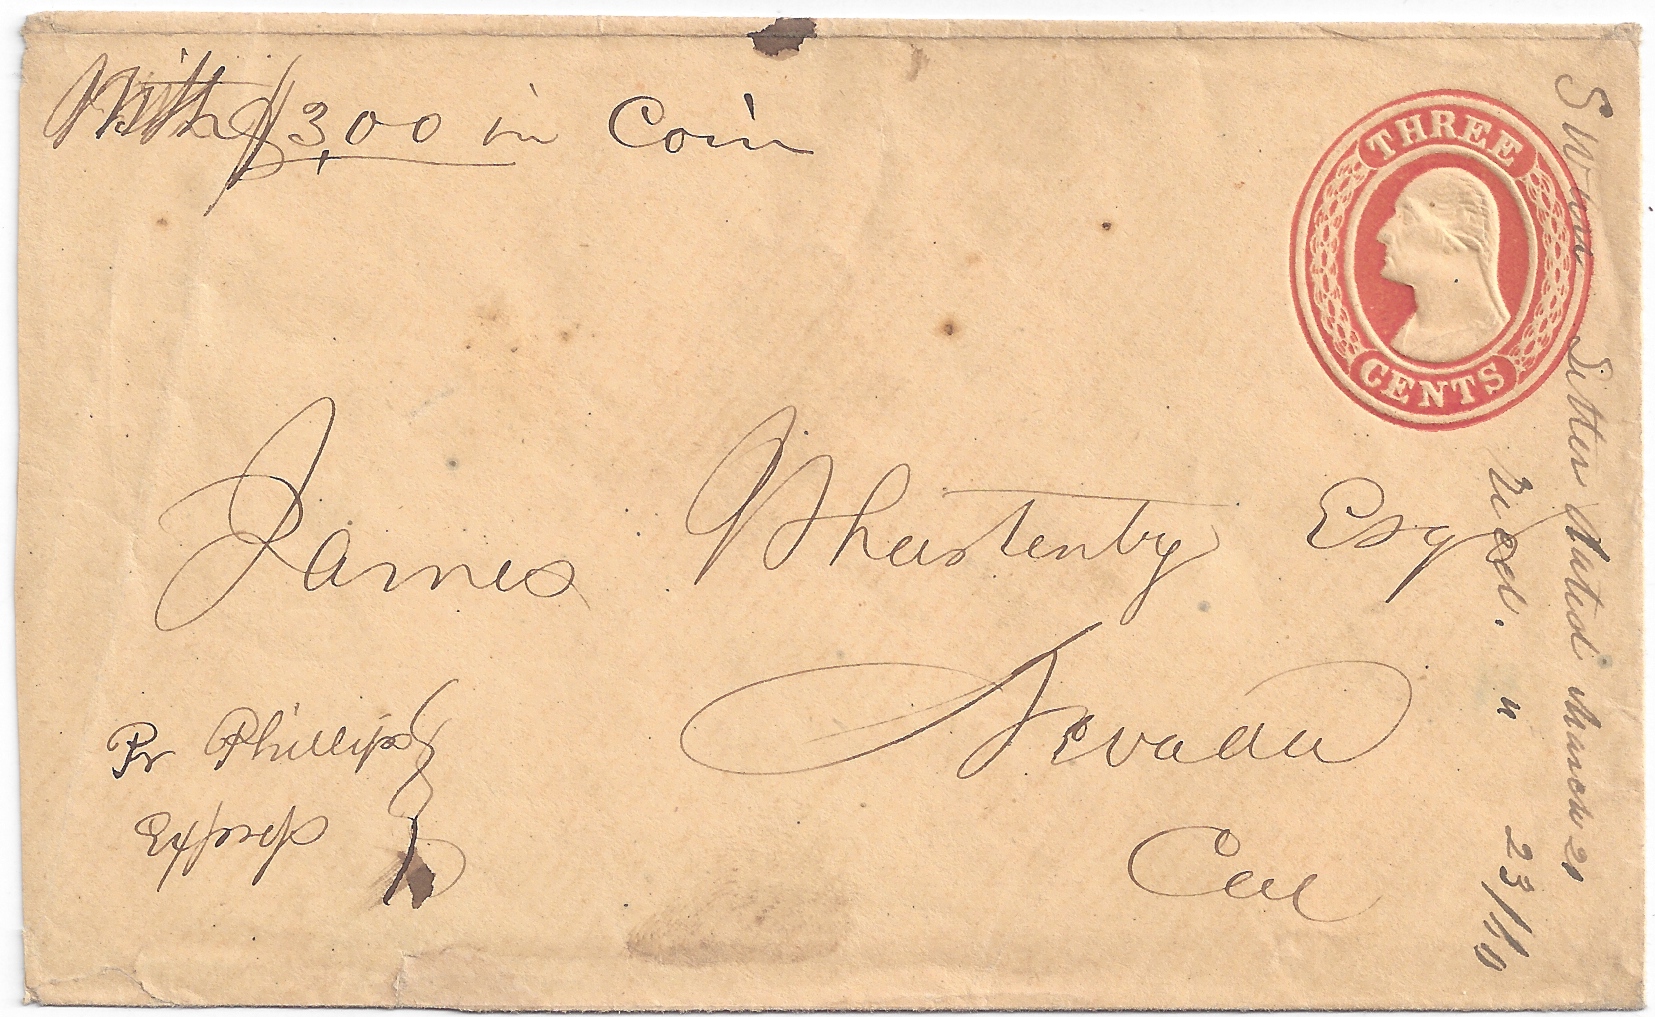 With $3,00 in Coin
THREE
CENTS
James Whartenby Esq
Nevada
Cal
Pr Phillips
Express
Letter dated March 20
Recd. " 23/